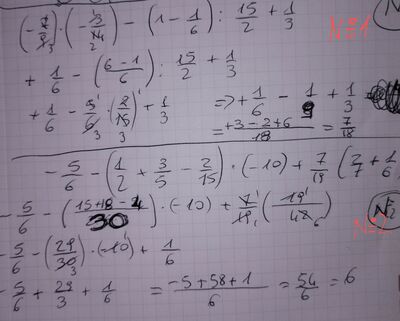 (-7/9 3)·(-3/14 2) - (1-1/6) : 15/2 + 1/3 N=1
+ 1/6 - (6-1/6) : 15/2 + 1/3
+ 1/6 - 5¹/6 3 · (2/15 3)¹ + 1/3 => + 1/6 - 1/9 + 1/3
= +3-2+6/18 = 7/18
- 5/6 - (1/2 + 3/5 - 2/15)·(-10) + 7/19 (2/7 + 1/6
- 5/6 - (15+18-4/30)·(-10) + 7¹/19 1 (19¹/42 6) N=2
- 5/6 - (29/30 3)·(-10)¹ + 1/6
- 5/6 + 29/3 + 1/6 = -5+58+1/6 = 54/6 = 6